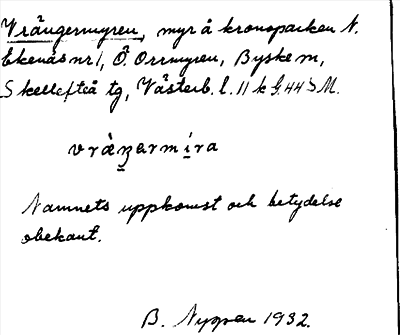 Vrångermyren, myr å kronoparken N.
Ekenäs nr 1, Ö. Orrmyren, Byske m,
Skellefteå tg, Västerb. l. 11 k G. 44 S M.
vråŋermíra
Namnets uppkomst och betydelse
obekant.
B. Nygren 1932.